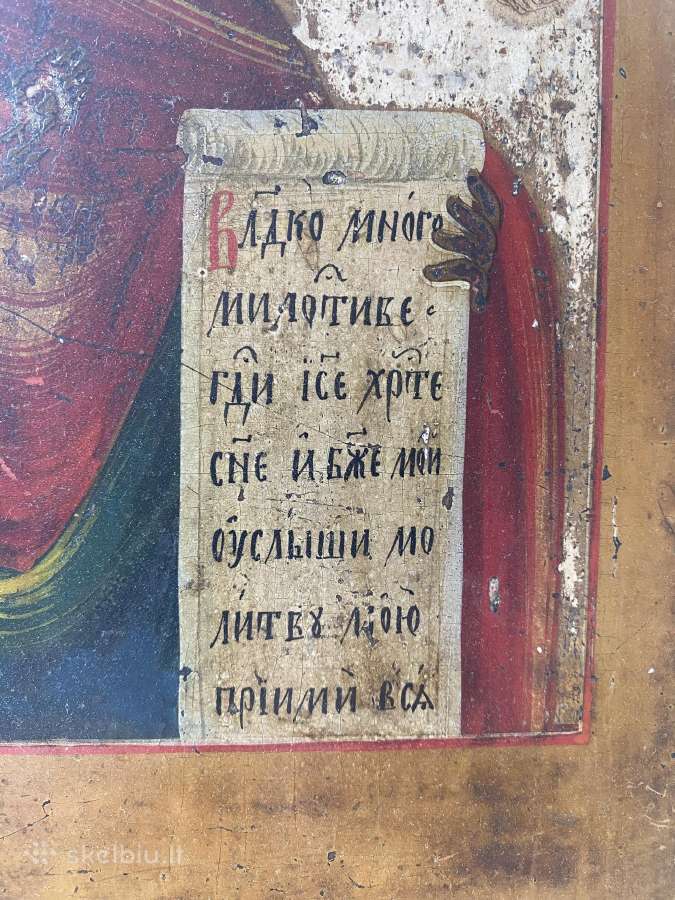 Влⷣко мно́го
милоⷭ҇тиве.
гдⷭ҇и і҆с҃е хрⷭ҇те
сн҃е и҆ бж҃е мо́й
ᲂу҆слы́ши мо
ли́твꙋ мою̀
прїимѝ всѧ̀
skelbiu.lt